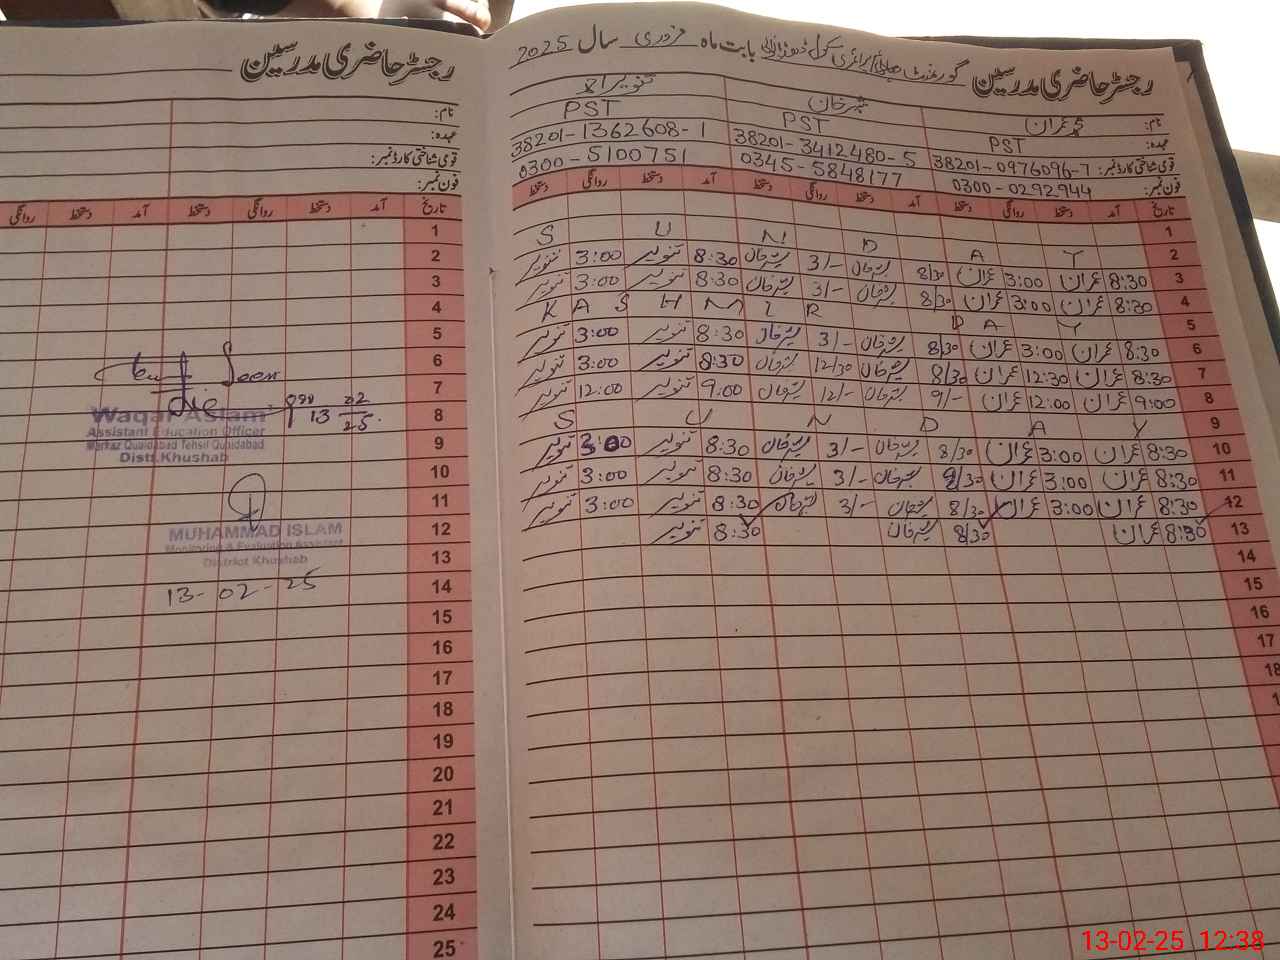 رجسٹر حاضری مدرسین
نام:
عہدہ:
قومی شناختی کارڈ نمبر:
فون نمبر:
تاریخ آمد دستخط روانگی دستخط آمد دستخط روانگی
1
2
3
4
5
6
7
8
9
10
11
12
13
14
15
16
17
18
19
20
21
22
23
24
25
Seen
13 02 25
Waqar Aslam
Assistant Education Officer
Markaz Quaidabad Tehsil Quaidabad
Distt.Khushab
MUHAMMAD ISLAM
Monitoring & Evaluation Assistant
District Khushab
13-02-25
رجسٹر حاضری مدرسین گورنمنٹ پرائمری سکول بابت ماہ فروری سال 2025
نام: محمد عمران شیر خان تنویر
عہدہ: PST PST PST
قومی شناختی کارڈ نمبر: 38201-0976096-7 38201-3412480-5 38201-1362608-1
فون نمبر: 0300-0292944 0345-5848177 0300-5100751
تاریخ آمد دستخط روانگی دستخط آمد دستخط روانگی دستخط آمد دستخط روانگی دستخط
1
2 S U N D A Y
3 8:30 عمران 3:00 عمران 8/30 شیر خان 3/- شیر خان 8:30 تنویر 3:00 تنویر
4 8:30 عمران 3:00 عمران 8/30 شیر خان 3/- شیر خان 8:30 تنویر 3:00 تنویر
5 K A S H M I R D A Y
6 8:30 عمران 3:00 عمران 8/30 شیر خان 3/- شیر خان 8:30 تنویر 3:00 تنویر
7 8:30 عمران 12:30 عمران 8/30 شیر خان 12/30 شیر خان 8:30 تنویر 3:00 تنویر
8 9:00 عمران 12:00 عمران 9/- شیر خان 12/- شیر خان 9:00 تنویر 12:00 تنویر
9 S U N D A Y
10 8:30 عمران 3:00 عمران 8/30 شیر خان 3/- شیر خان 8:30 تنویر 3:00 تنویر
11 8:30 عمران 3:00 عمران 8/30 شیر خان 3/- شیر خان 8:30 تنویر 3:00 تنویر
12 8:30 عمران 3:00 عمران 8/30 شیر خان 3/- شیر خان 8:30 تنویر 3:00 تنویر
13 8:30 عمران 8/30 شیر خان 8:30 تنویر
14
15
16
17
18
13-02-25 12:38